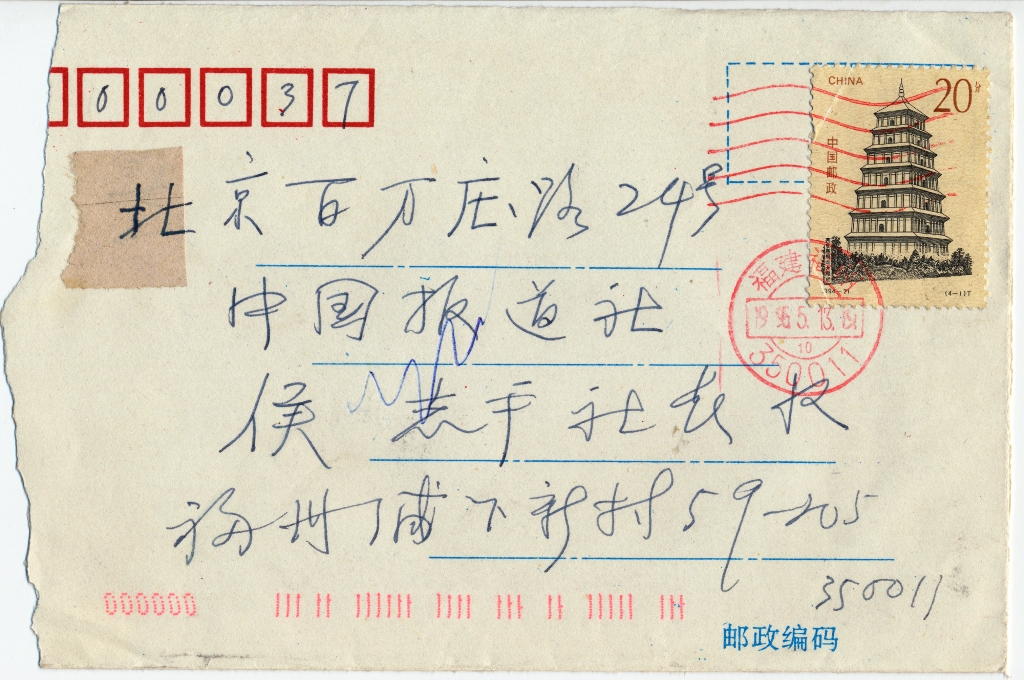 00037
CHINA
20分
中国邮政
北京百万庄路24号
中国报道社
侯志平社长收
福州浦下新村59-205
350011
1996.5.13.19
10
350011
1994-21
(4-1)T
000000
邮政编码